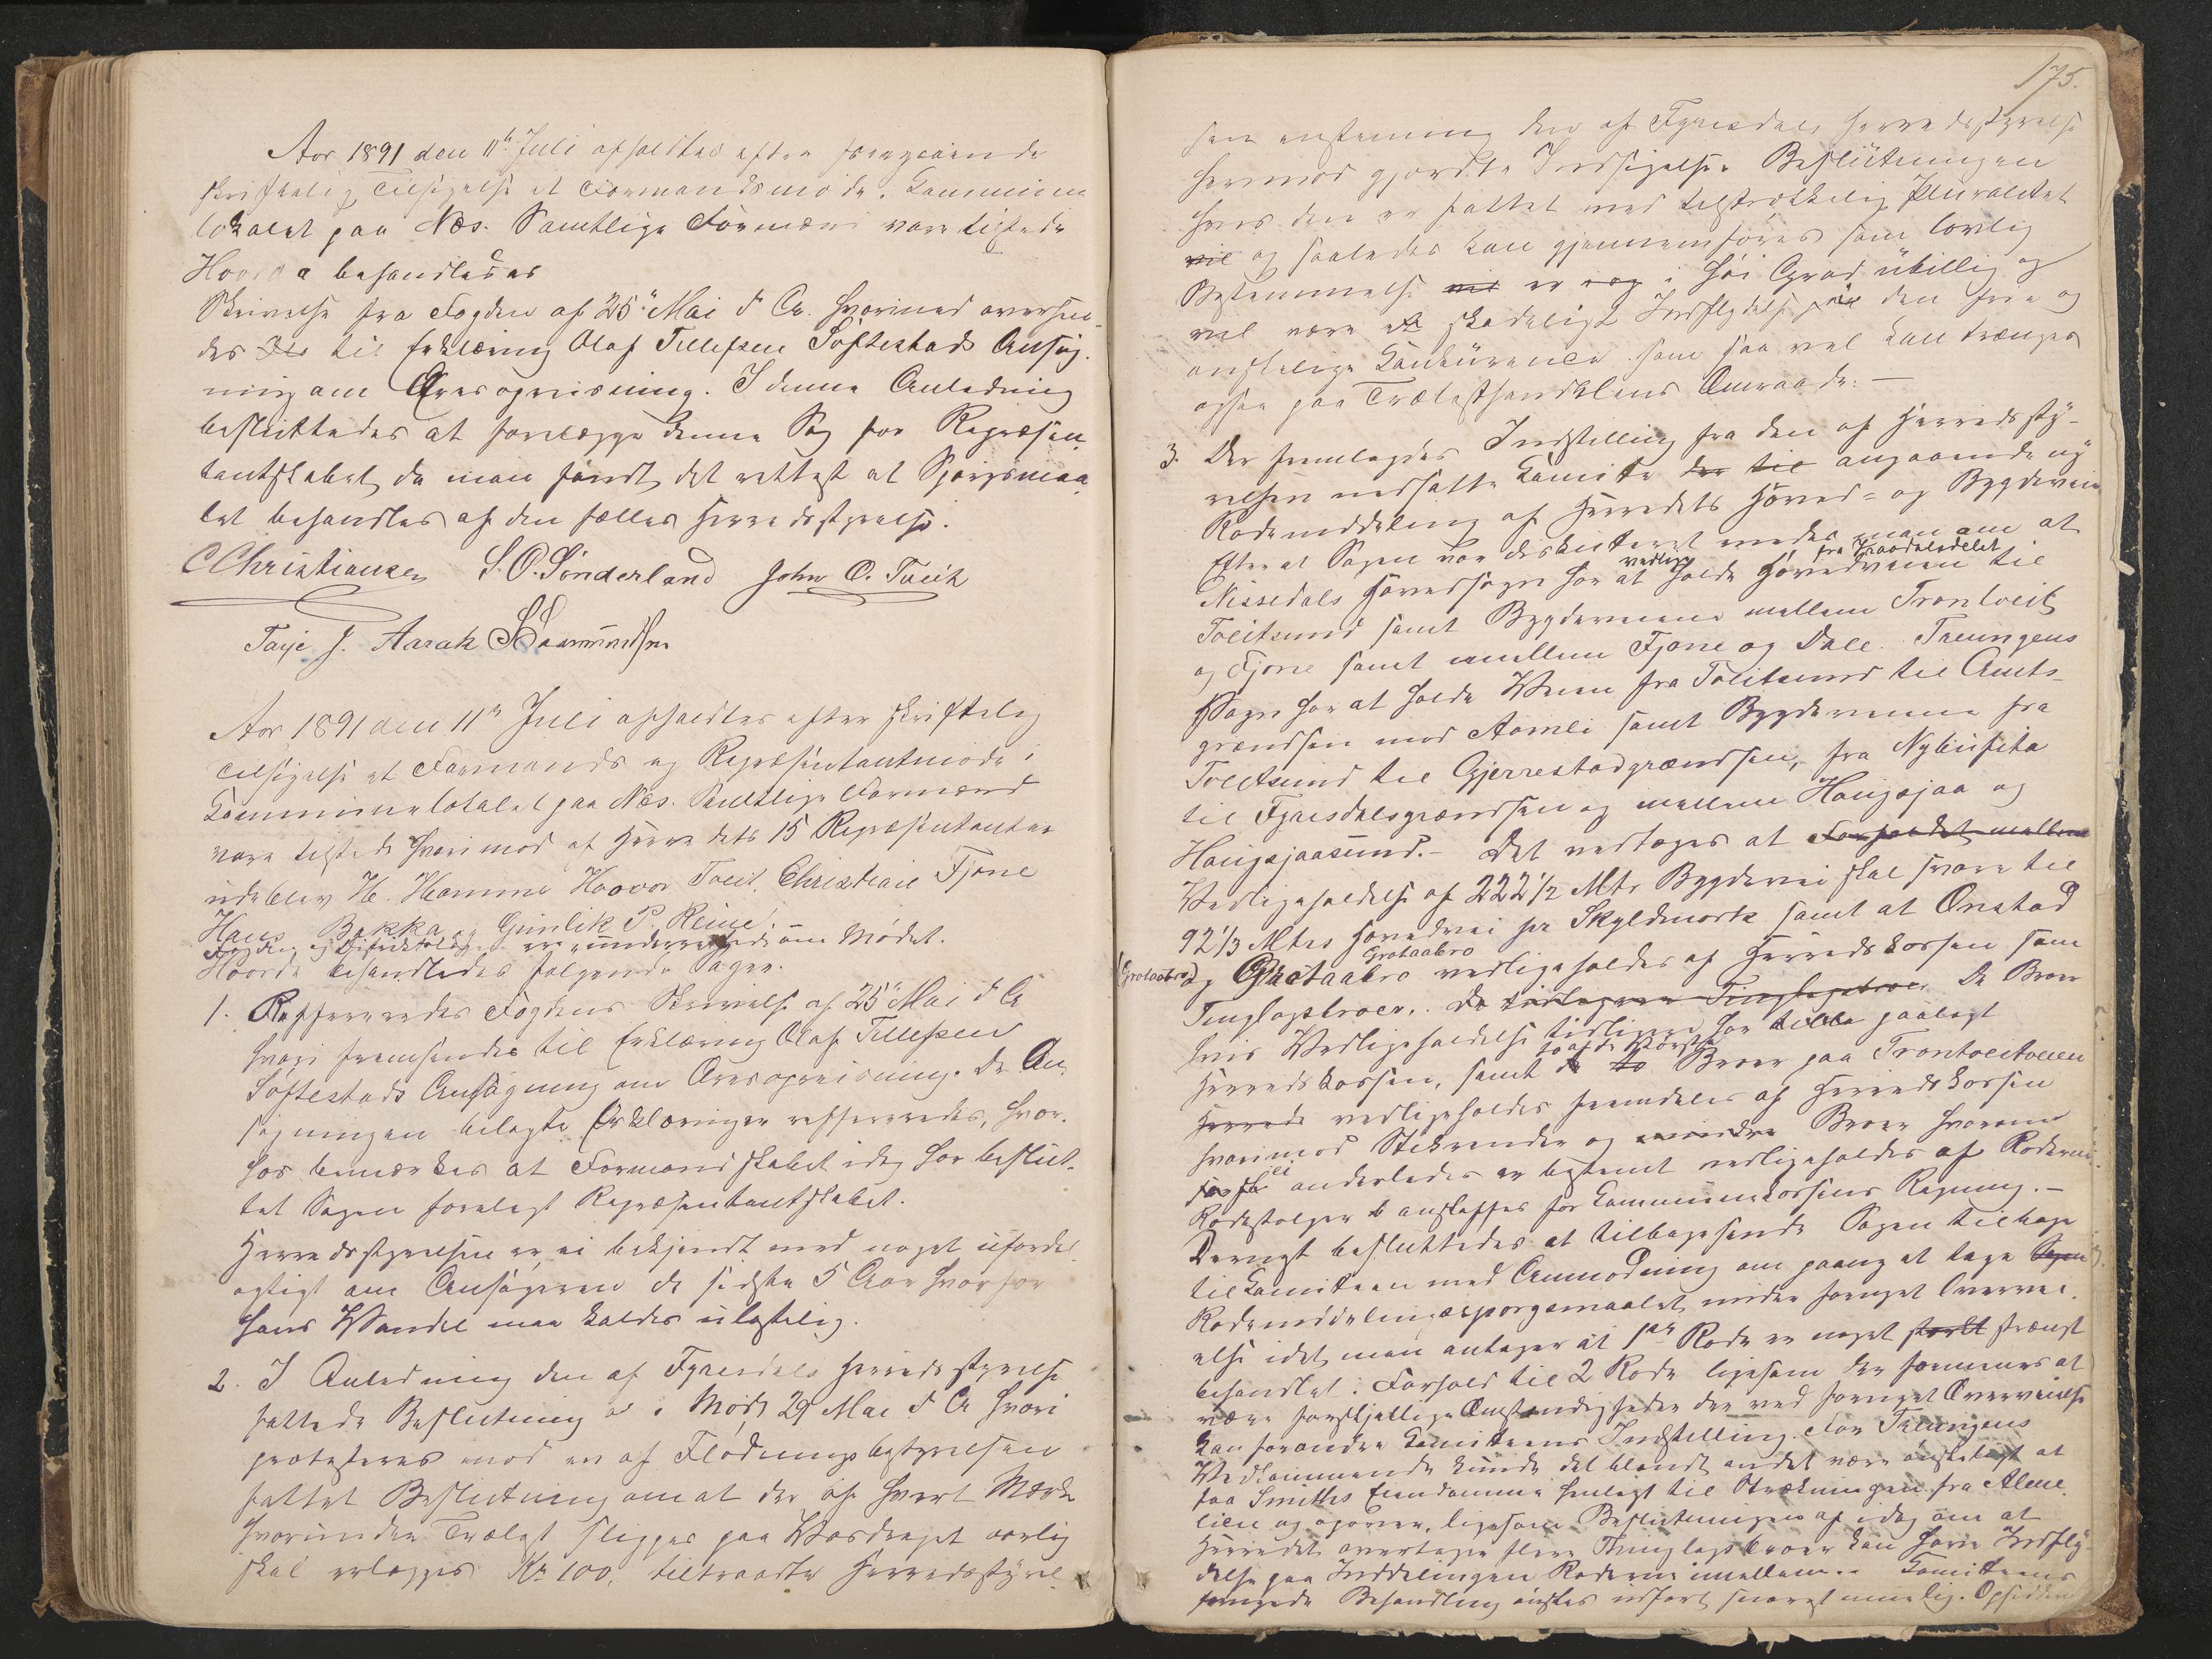 Aar 1891 den 11te Juli afholdtes efter foregaaende
skriftelig Tilsigelse et Formandsmøde i Kommune
lokalet paa Næs. Samtlige Formænd vare tilstede
Hvorda behandledes
Skrivelse fra Fogden af 25de Mai d. A. hvormed oversen-
des til Erklæring Olaf Tellefsen Søftestads Ansøg-
ning om Æresopreisning. I denne Anledning
besluttedes at forelægge denne Sag for Repræsen-
tantskabet, da man fandt det rettest at Spørgsmaa-
let behandles af den fælles Herredsstyrelse.
CChristiansen S. O. Sønderland John O. Tveit
Tarje J. Aarak SSaamundsen
Aar 1891 den 11te Juli afholdtes efter skriftelig
Tilsigelse et Formands og Repræsentantmøde i
Kommunelokalet paa Næs. Samtlige Formænd
vare tilstede hvorimod af Herredets 15 Repræsentanter
udeblev H. Hamme Haavor Tveit, Christian Fjone
Hans Bakka og Gunlik P. Reine
Fogden og Distriktslægen ere underrettede om Mødet.
Hvorda behandledes følgende Sager.
1. Reffereredes Fogdens Skrivelse af 25de Mai d. A
hvori fremsendes til Erklæring Olaf Tellefsen
Søftestads Ansøgning om Æresopreisning. De An-
søgningen bilagte Erklæringer reffereredes, hvor-
hos bemærkes at Formandskabet idag har beslut-
tet Sagen forelagt Repræsentantskabet.
Herredsstyrelsen er ei bekjendt med noget ufordel-
agtigt om Ansøgeren de sidste 5 Aar hvorfor
hans Vandel maa kaldes ulastelig.
2. I Anledning den af Fyresdals Herredsstyrelse
fattede Beslutning i Møde 29 Mai d. A hvori
protesteres mod en af Flødningsbestyrelsen
fattet Beslutning om at der af hvert Mærke
hvorunder Trælast flyttes paa Vasdraget aarlig
skal erlægges Kr 100, tiltraadte Herredsstyrel-
175.
sen enstemmig den af Fyresdals Herredsstyrelse
hermod gjordte Indsigelse. Beslutningen
hvis den er fattet med tilstrækkelig Pluralitet
vil og saaledes kan gjennemføres som lovlig
Bestemmelse vil er og i høi Grad ubillig og
vil være af skadeligt Indflydelse paa den frie og
ønskelige Konkurrance som saa vel kan trænges
ogsaa paa Trælasthandelens Omraade. —
3. Der fremlagdes Indstilling fra den af Herredssty-
relsen nedsatte Komite der til angaaende ny
Rodeinddeling af Herredets Hoved- og Bygdeveie
Efter at Sagen var diskuteret enedes man om at
Nissedals Hovedsogn har at vedlige holde Hovedveien fra Kraadalsdelet til
Tveitsund samt Bygdeveiene mellem Trontveit
og Fjone samt mellem Fjone og Dale. Treungens
Sogn har at holde Veien fra Tveitsund til Amts-
grændsen mod Aamli samt Bygdeveiene fra
Tveitsund til Gjerrestadgrændsen, fra Nybufita
til Fyresdalsgrændsen og mellem Haugsjaa og
Haugsjaasund. – Det vedtoges at Forholdet mellem
Vedligeholdelse af 222½ Mtr Bygdevei skal svare til
92⅓ Mtrs Hovedvei pr Skyldmark samt at Ønstad
(Grotaabro) og Grotaabro Grotaabro vedligeholdes af Herredskassen som
Tinglagsbroer. De tidligere Tinglagsbroer De Broer
hvis Vedligeholdelse tidligere har paalagt
Herredskassen, samt de to af de største Broer paa Trontveitveien
Herreds vedligeholdes fremdeles af Herredskassen
hvorimod Stikrender og mindre Broer hvorom
ei anderledes er bestemt vedligeholdes af Roderne.
Rodestolper anskaffes for Kommunekassens Regning. —
Dernæst besluttedes at tilbagesende Sagen tilbage
til Komiteen med Anmodning om paany at tage Sagen
Rodeinddelingsspørgsmaalet under fornyet Overvei-
else idet man antager at 1ste Rode er noget stærkt strængt
behandlet i Forhold til 2 Rode ligesom der formenes at
være forskjellige Omstændigheder der ved fornyet Overveielse
kan forandre Komiteens Indstilling. For Treungens
Vedkommende kunde det blandt andet være ønskeligt at
faa Smiths Eiendomme henlagt til Strækningen fra Alme-
lien og opover, ligesom Beslutningen af idag om at
Herredet overtager flere Tinglagsbroer kan have Indfly-
delse paa Inddelingen Roderne imellem. – Komiteens
fornyede Behandling ønskes udført snarest muelig. Opsidderne